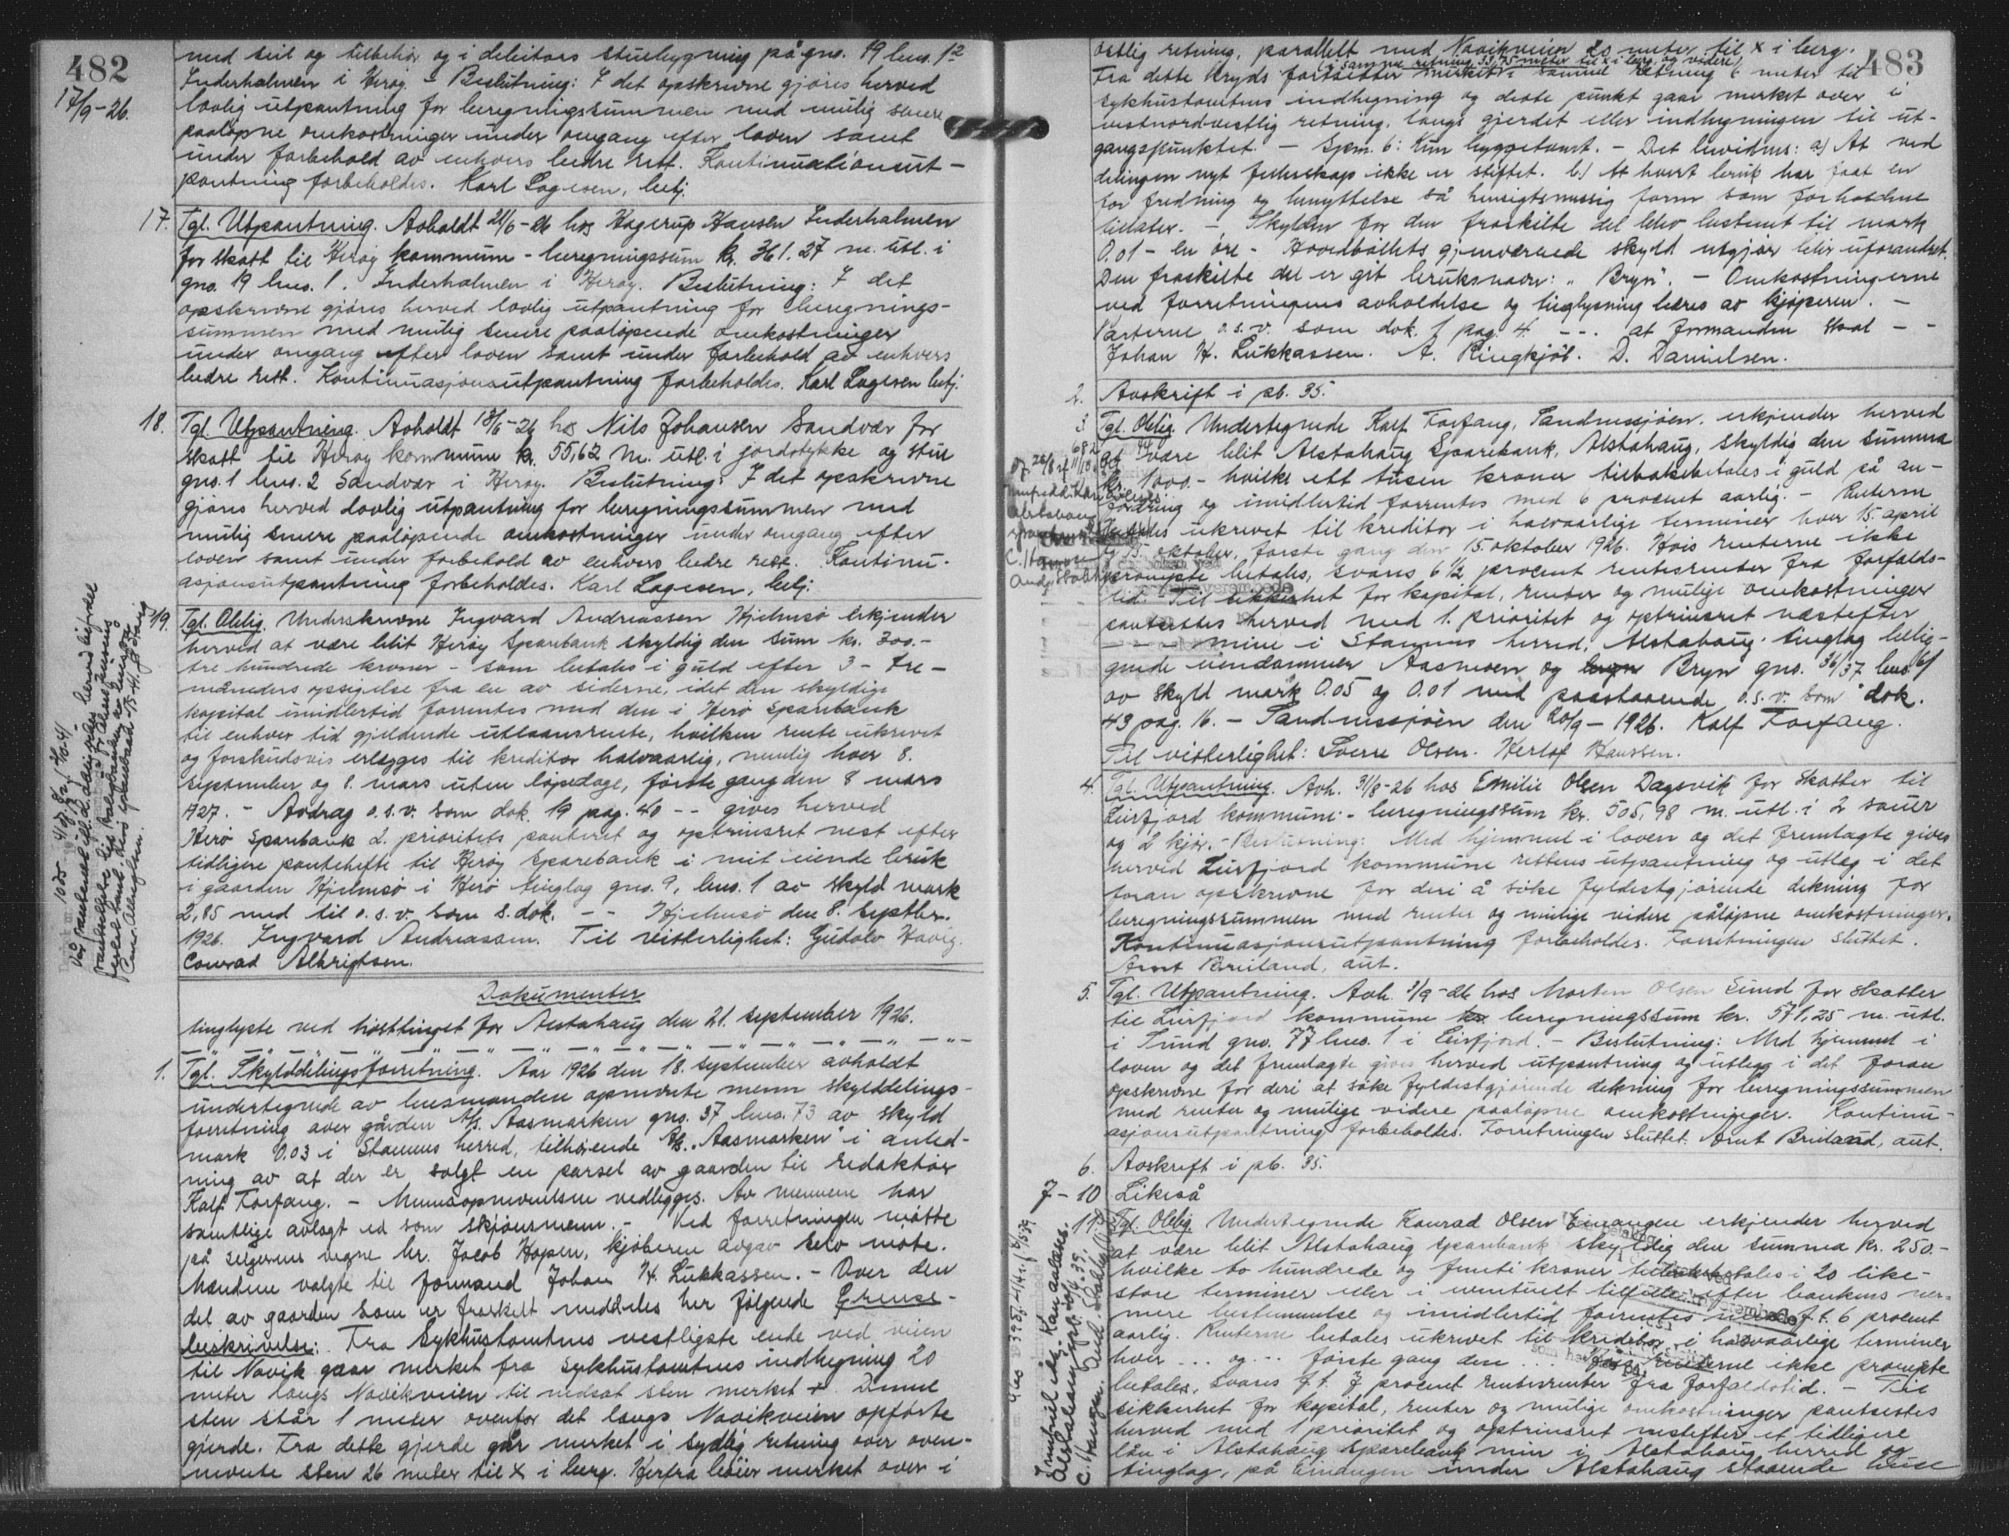 482
17/9-26.
med seil og tilbehør og i debitors stuebygning på gno. 19 bno. 1²
Inderholmen i Herøy. - Beslutning: I det opskrevne gjøres herved
lovlig utpantning for beregningssummen med mulig senere
paaløpne omkostninger under omgang efter loven samt
under forbehold av enhvers bedre rett. Kontinuationsut-
pantning forbeholdes. Karl Lagesen, betj.
17. Tgl. Utpantning. Avholdt 21/6-26 hos Hagerup Hansen Inderholmen
for skatt til Herøy kommune - beregningssum kr. 361.27 m. utl. i
gno. 19 bno. 1. Inderholmen i Herøy. Beslutning: I det
opskrevne gjøres herved lovlig utpantning for beregnings-
summen med mulig senere paaløpende omkostninger
under omgang efter loven samt under forbehold av enhvers
bedre rett. Kontinuasjonsutpantning forbeholdes. Karl Lagesen betj.
18. Tgl. Utpantning. Avholdt 18/6-26 hos Nils Johansen Sandvær for
skatt til Herøy kommune kr. 55,62 m. utl. i jordstykke og stue
gno. 1 bno. 2 Sandvær i Herøy. Beslutning: I det opskrevne
gjøres herved lovlig utpantning for beregningssummen med
mulig senere paaløpende omkostninger under omgang efter
loven samt under forbehold av enhvers bedre rett. Kontinu-
asjonsutpantning forbeholdes. Karl Lagesen, betj.
19. Tgl. Oblig. Underskrevne Ingvard Andreassen Hjelmsø erkjender
herved at være blit Herøy Sparebank skyldig den sum kr. 300.-
tre hundrede kroner - som betales i guld efter 3 - tre -
måneders opsigelse fra en av siderne, idet den skyldige
kapital imidlertid forrentes med den i Herø Sparebank
til enhver tid gjeldende utlaansrente, hvilken rente ukrevet
og forskudsvis erlægges til kreditor halvaarlig, nemlig hver 8.
september og 8. mars uten løpedage, første gang den 8 mars
1927. - Avdrag o.s.v. som dok. 19 pag. 40 -- gives herved
Herø Sparebank 2. prioritets panteret og optrinsret nest efter
tidligere pantehefte til Herøy Sparebank i mit eiende bruk
i gaarden Hjelmsø i Herø tinglag gno. 9, bno. 1 av skyld mark
2,85 med til o.s.v. som s. dok. - - Hjelmsø den 8. septbr.
1926. Ingvard Andreassen. Til vitterlighet: Gudolv Havig.
Conrad Albrigtsen.
Dokumenter
tinglyste ved høsttinget for Alstahaug den 21. september 1926.
1. Tgl. Skylddelingsforretning. Aar 1926 den 18. september avholdt
undertegnede av lensmanden opnævnte menn skylddelings-
forretning over gården A/s. Aasmarken gno. 37 bno. 73 av skyld
mark 0.03 i Stamnes herred, tilhørende A/s. "Aasmarken" i anled-
ning av at der er solgt en parsel av gaarden til redaktør
Kalf Forfang. - Mennsopnevnelsen vedlegges. Av mennene har
samtlige avlagt ed som skjønsmenn. - Ved forretningen møtte
på selgerens vegne hr. Jacob Hopen, kjøberen avgav selv møte.
Mændene valgte til formand Johan H. Lukkassen. - Over den
del av gaarden som er fraskilt meddeles her følgende Grense-
beskrivelse: Fra Sykhustomtens vestligste ende ved veien
til Novik gaar merket fra sykhustomtens indhegning 20
meter langs Novikveien til nedsat sten merket x. Denne
sten står 1 meter ovenfor det langs Novikveien opførte
gjerde. Fra dette gjerde går merket i sydlig retning over oven-
nevnte sten 26 meter til x i berg. Herfra bøier merket over i
483
østlig retning, parallelt med Novikveien 20 meter til x i berg.
i samme retning 33,75 meter til x i berg og videre
Fra dette kryds fortsetter merket i samme retning 6 meter til
sykhustomtens indhegning og dette punkt gaar merket over i
vestnordvestlig retning, langs gjerdet eller indhegningen til ut-
gangspunktet. - Spm. 6: Kun byggetomt. - Det bevidnes: a) At ved
delingen nyt fellesskap ikke er stiftet. b) At hvert bruk har faat en
for fredning og benyttelse så hensigtsmessig form som forholdene
tillater. - Skylden for den fraskilte del blev bestemt til mark
0,01 - en øre - Hovedbøllets gjenværende skyld utgjør blir uforandret.
Den fraskilte del er git bruksnavn: "Bryn". - Omkostningerne
ved forretningens avholdelse og tinglysning bæres av kjøperen. -
Parterne o.s.v. som dok. 1 pag. 4 - - - at formanden skal - -
Johan H. Lukkassen. A. Ringkjøb. D. Danielsen.
2. Avskrift i pb. 35.
3. Tgl. Oblig. Undertegnede Kalf Forfang, Sandnessjøen, erkjender herved
at være blit Alstahaug Sparebank, Alstahaug, skyldig den summa
kr. 1000.- hvilke ett tusen kroner tilbakebetales i guld på an-
fordring og imidlertid forrentes med 6 procent aarlig. - Renterne
betales ukrevet til kreditor i halvaarlige terminer hver 15. april
og 15. oktober, første gang den 15. oktober 1926. Hvis renterne ikke
prompte betales, svares 6 1/2 procent rentesrenter fra forfalds-
tid. Til sikkerhet for kapital, renter og mulige omkostninger
pantsettes herved med 1. prioritet og optrinsret næstefter
- - - mine i Stamnes herred, Alstahaug tinglag belig-
gende eiendommer Aasmoen og Bryn gno. 36/37 bno. 6/
av skyld mark 0.05 og 0.01 med paastaaende o.s.v. som dok.
43 pag. 16. - Sandnessjøen den 20/9 - 1926. Kalf Forfang.
Til vitterlighet: Sverre Olsen. Hertof Hanssen.
4. Tgl. Utpantning. Avh. 31/8-26 hos Emilie Olsen Dagsvik for skatter til
Leirfjord kommune - beregningssum kr. 505,98 m. utl. i 2 sauer
og 2 kjør. - Beslutning: Med hjemmel i loven og det fremlagte gives
herved Leirfjord kommune rettens utpantning og utlæg i det
foran opskrevne for deri å søke fyldestgjørende dekning for
beregningssummen med renter og mulige videre påløpne omkostninger.
Kontinuasjonsutpantning forbeholdes. Forretningen sluttet.
Arnt Breiland, aut.
5. Tgl. Utpantning. Avh. 3/9-26 hos Morten Olsen Sund for skatter
til Leirfjord kommune beregningssum kr. 571,25 m. utl.
i Sund gno. 77 bno. 1 i Leirfjord. - Beslutning: Med hjemmel i
loven og det fremlagte gives herved utpantning og utlegg i det foran
opskrevne for deri at søke fyldestgjørende dekning for beregningssummen
med renter og mulige videre paaløpne omkostninger. Kontinu-
asjonsutpantning forbeholdes. Forretningen sluttet. Arnt Breiland, aut.
6. Avskrift i pb. 35.
7 - 10 Likeså
11. Tgl. Oblig. Undertegnede Konrad Olsen Einangen erkjender herved
at være blit Alstahaug Sparebank skyldig den summa kr. 250.-
hvilke to hundrede og femti kroner tilbakebetales i 20 like-
store terminer eller i eventuelt tilfelle efter bankens ner-
mere bestemmelse og imidlertid forrentes f.t. 6 procent
aarlig. Renterne betales ukrevet til kreditor i halvaarlige terminer
hver ... og ... første gang den ... Hvis renterne ikke prompte
betales, svares f.t. 7 procent rentesrenter fra forfaldstid. - Til
sikkerhet for kapital, renter og mulige omkostninger pantsettes
herved med 1 prioritet og optrinsret nestefter et tidligere
lån i Alstahaug Sparebank min i Alstahaug herred og
tinglag, på Einangen under Alstahaug staaende huse